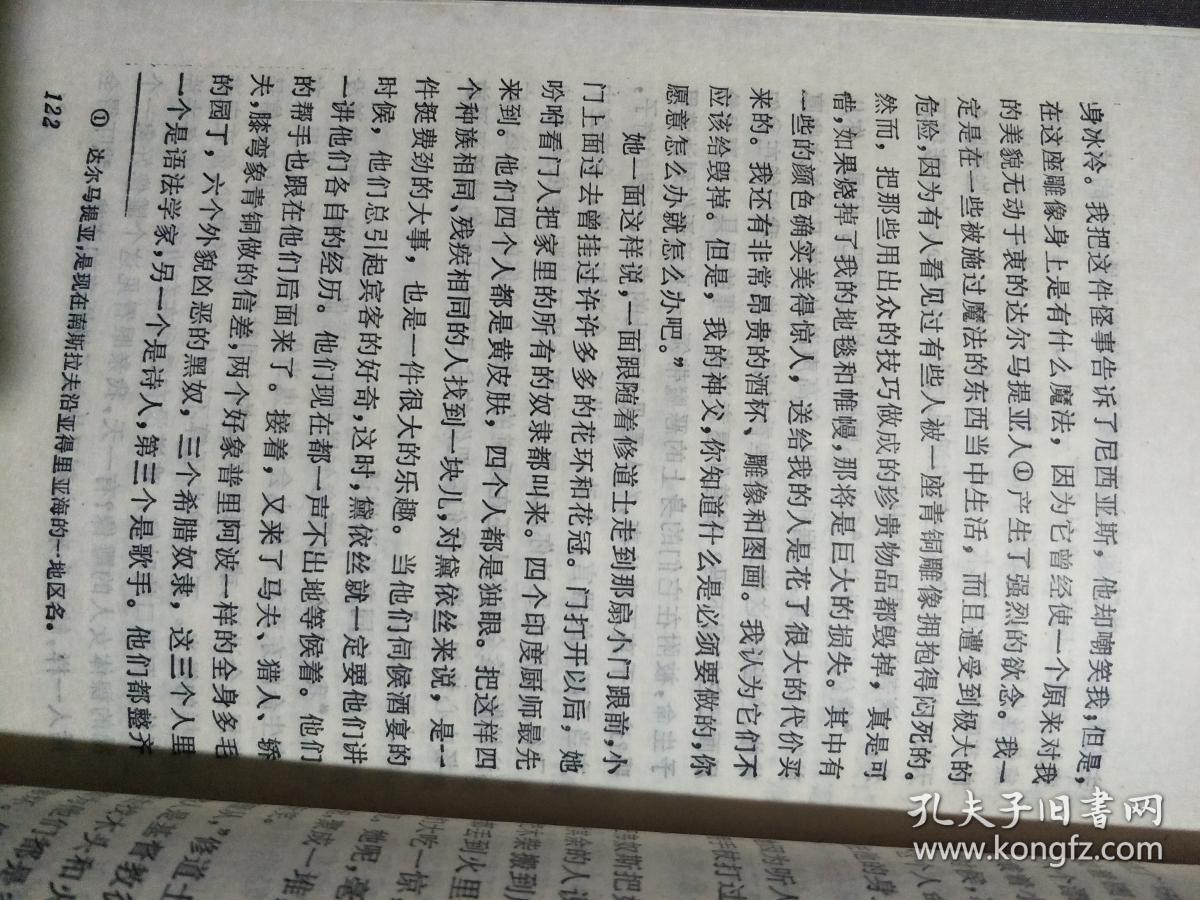 身冰冷。我把这件怪事告诉了尼西亚斯，他却嘲笑我；但是，
在这座雕像身上是有什么魔法，因为它曾经使一个原来对我
的美貌无动于衷的达尔马提亚人①产生了强烈的欲念。我一
定是在一些被施过魔法的东西当中生活，而且遭受到极大的
危险，因为有人看见过有些人被一座青铜雕像拥抱得闷死的。
然而，把那些用出众的技巧做成的珍贵物品都毁掉，真是可
惜，如果烧掉了我的地毯和帷幔，那将是巨大的损失。其中有
一些的颜色确实美得惊人，送给我的人是花了很大的代价买
来的。我还有非常昂贵的酒杯、雕像和图画。我认为它们不
应该给毁掉。但是，我的神父，你知道什么是必须要做的，你
愿意怎么办就怎么办吧。”
她一面这样说，一面跟随着修道士走到那扇小门跟前，小
门上面过去曾挂过许许多多的花环和花冠。门打开以后，她
吩咐看门人把家里的所有的奴隶都叫来。四个印度厨师最先
来到。他们四个人都是黄皮肤，四个人都是独眼。把这样四
个种族相同、残疾相同的人找到一块儿，对黛依丝来说，是一
件挺费劲的大事，也是一件很大的乐趣。当他们伺候酒宴的
时候，他们总引起宾客的好奇，这时，黛依丝就一定要他们讲
一讲他们各自的经历。他们现在都一声不出地等候着。他们
的帮手也跟在他们后面来了。接着，又来了马夫、猎人、轿
夫，膝弯象青铜做的信差，两个好象普里阿波一样的全身多毛
的园丁，六个外貌凶恶的黑奴，三个希腊奴隶，这三个人里
一个是语法学家，另一个是诗人，第三个是歌手。他们都整齐
① 达尔马提亚，是现在南斯拉夫沿亚得里亚海的一地区名。
122
孔夫子旧书网
www.kongfz.com